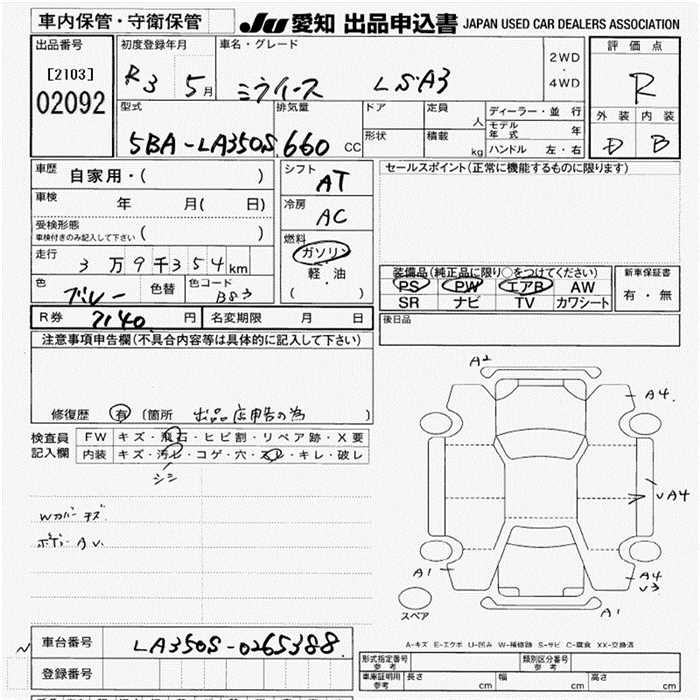 車内保管・守衛保管 JU 愛知 出品申込書 JAPAN USED CAR DEALERS ASSOCIATION
出品番号 [2103] 02092
初度登録年月 R3 5月
車名・グレード ミライース LSA3
2WD・4WD
評価点 R
外装 内装
D B
型式 5BA-LA350S
排気量 660 CC
ドア 定員 人
形状 積載 kg
ディーラー・並行
モデル年式 年
ハンドル 左・右
車歴 自家用・( )
車検 年 月( 日)
受検形態 車検付きのみ記入して下さい ( )
走行 3万9千354km
色 グレー 色替 色コード B83
シフト AT
冷房 AC
燃料 ガソリン・軽油 ( )
セールスポイント(正常に機能するものに限ります)
装備品(純正品に限り○をつけてください)
PS PW エアB AW
SR ナビ TV カワシート
新車保証書 有・無
後日品
R券 7140 円 名変期限 月 日
注意事項申告欄(不具合内容等は具体的に記入して下さい)
修復歴 有 〔箇所 出品店申告の為 〕
検査員記入欄
FW キズ・飛石・ヒビ割・リペア跡・X要
内装 キズ・汚レ・コゲ・穴・スレ・キレ・破レ
シミ
Wカバーキズ
ボディーAU.
A2
A4.
UA4
A1
A4
U3
A1
スペア
A-キズ E-エクボ U-凹み W-補修跡 S-サビ C-腐食 XX-交換済
車台番号 LA350S-0265388
登録番号
形式指定番号 参考 類別区分番号 参考
車庫証明用 参考 長さ cm 幅 cm 高さ cm